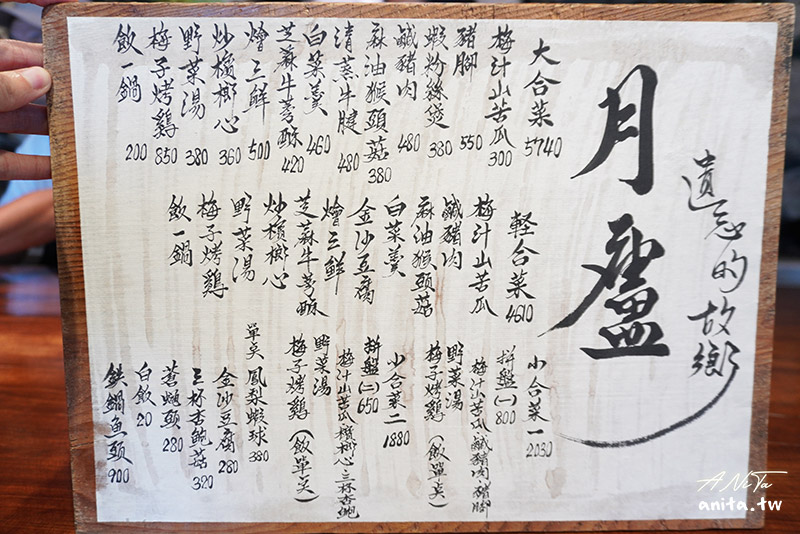 月廬
遺忘的故鄉
大合菜 5740
梅汁山苦瓜 300
豬腳 550
蝦粉絲煲 380
鹹豬肉 480
麻油猴頭菇 380
清蒸牛腱 480
白菜羹 460
芝蔴牛蒡酥 420
燴三鮮 500
炒檳榔心 360
野菜湯 380
梅子烤鷄 850
飲一鍋 200
軽合菜 4610
梅汁山苦瓜
鹹豬肉
麻油猴頭菇
白菜羹
金沙豆腐
燴三鮮
芝蔴牛蒡酥
炒檳榔心
野菜湯
梅子烤鷄
飲一鍋
小合菜一 2030
拼盤(一) 800
梅汁山苦瓜 鹹豬肉 豬腳
野菜湯
梅子烤鷄 (飯單矣)
小合菜二 1880
拼盤(二) 650
梅汁山苦瓜 檳榔心 三杯杏鮑
野菜湯
梅子烤鷄 (飯單矣)
單矣 鳳梨蝦球 380
金沙豆腐 280
三杯杏鮑菇 320
蒼蠅頭 280
白飲 20
鉄鍋魚頭 900
ANiTa
anita.tw